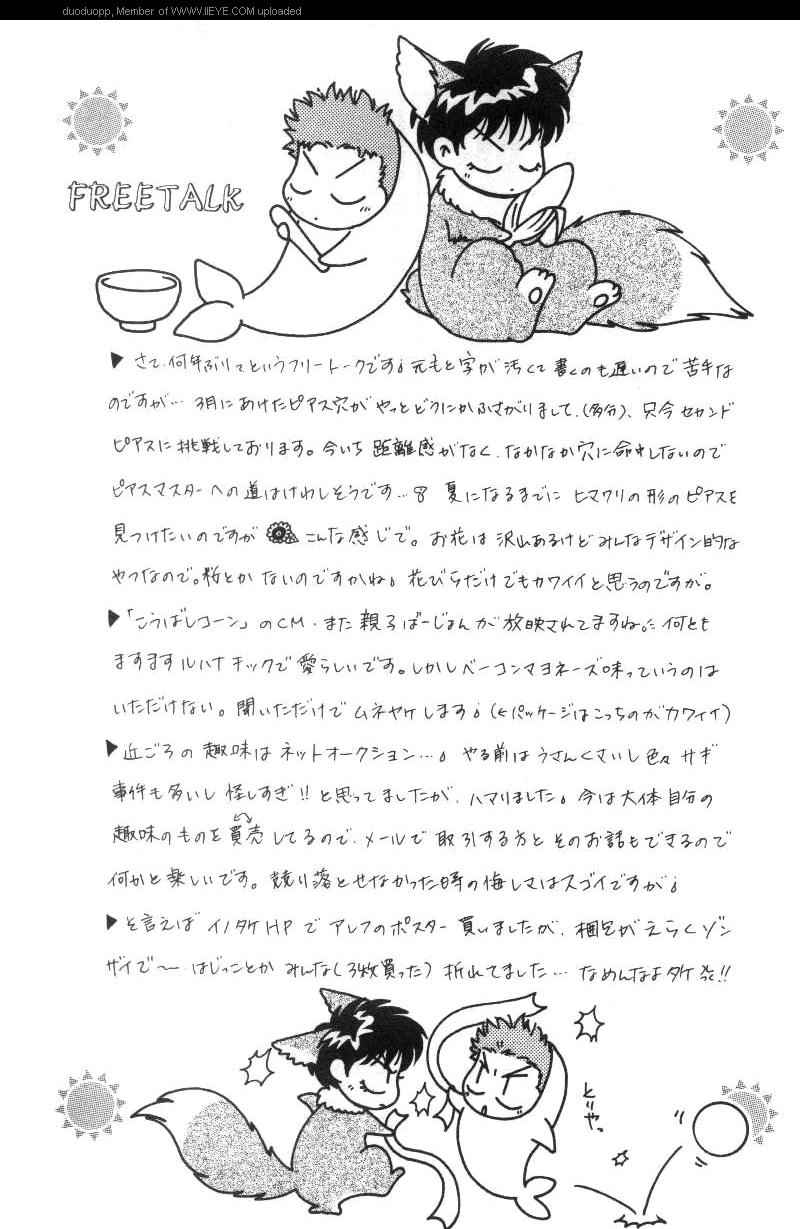 duoduopp, Member of WWW.IIEYE.COM uploaded
FREETALK
▶ さて、何年ぶり?というフリートークです。元もと字が汚くて書くのも遅いので苦手な
のですが… 3月にあけたピアス穴がやっとどうにかふさがりまして、(多分)、只今セカンド
ピアスに挑戦しております。今いち距離感がなく、なかなか穴に命中しないので
ピアスマスターへの道はけわしそうです… 夏になるまでに ヒマワリの形のピアスを
見つけたいのですが こんな感じで。お花は沢山あるけどみんなデザイン的な
やつなので。桜とかないのですかね。花びらだけでもカワイイと思うのですが。
▶「こうばしコーン」のCM・また親子ばーじょんが放映されてますね。何とも
ますますルハナチックで愛らしいです。しかしベーコンマヨネーズ味っていうのは
いただけない。聞いただけでムネヤケします。(←パッケージはこっちのがカワイイ)
▶近ごろの趣味はネットオークション…。やる前はうさんくさいし色々サギ
事件も多いし怪しすぎ!!と思ってましたが、ハマりました。今は大体自分の
趣味のものを買売してるので、メールで取引する方とそのお話もできるので
何かと楽しいです。競り落とせなかった時の悔しさはスゴイですが。
▶そ言えばイノタケHPでアレフのポスター買いましたが、梱包がえらくゾン
ザイで〜 はじっことかみんな(3枚買った)折れてました… なめんなよタケ
とりゃ。